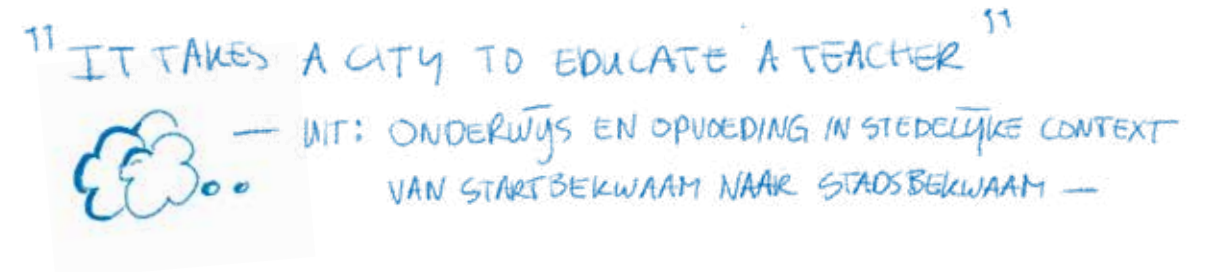 "IT TAKES A CITY TO EDUCATE A TEACHER"
— UIT: ONDERWIJS EN OPVOEDING IN STEDELIJKE CONTEXT
VAN STARTBEKWAAM NAAR STADSBEKWAAM —